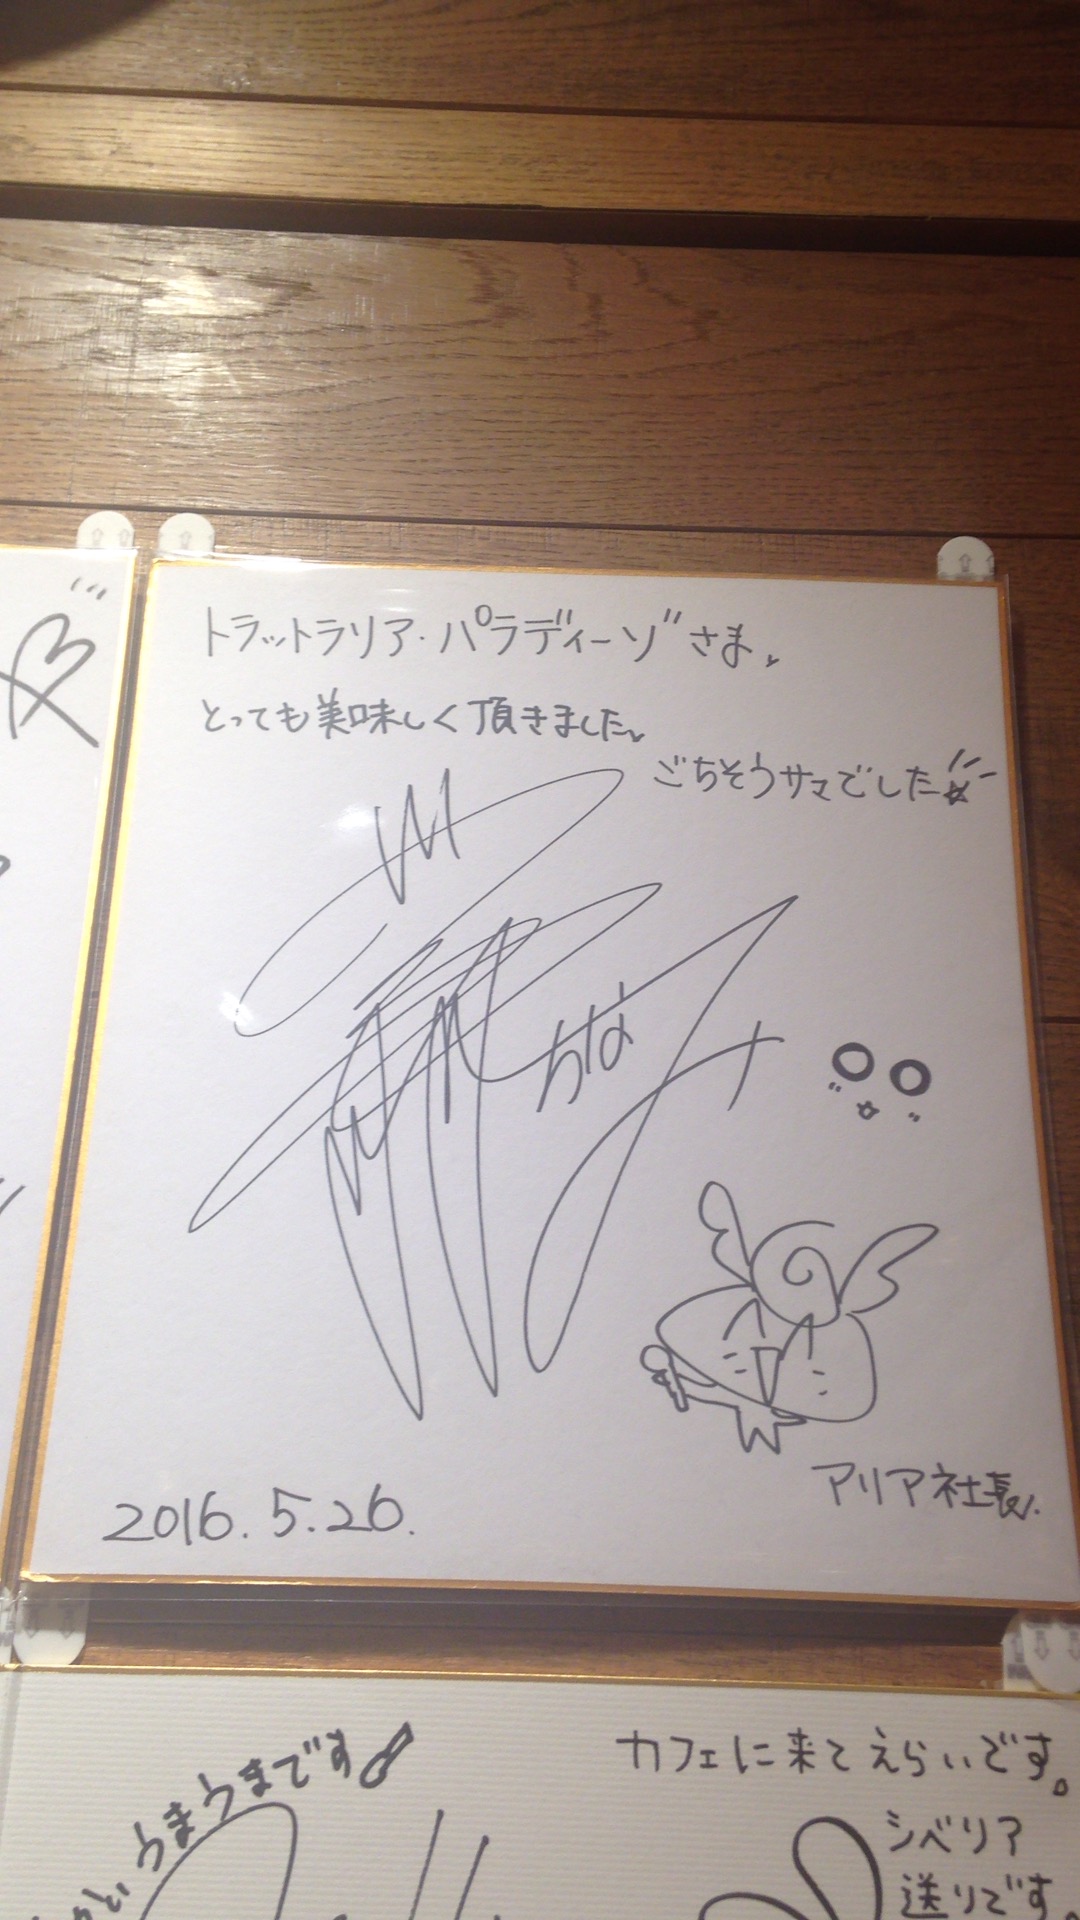 トラットラリア・パラディーゾさま
とっても美味しく頂きました
ごちそうサマでした
ちな
アリア社長
2016.5.26.
うまうまです
カフェに来てえらいです。
シベリア
送りです。